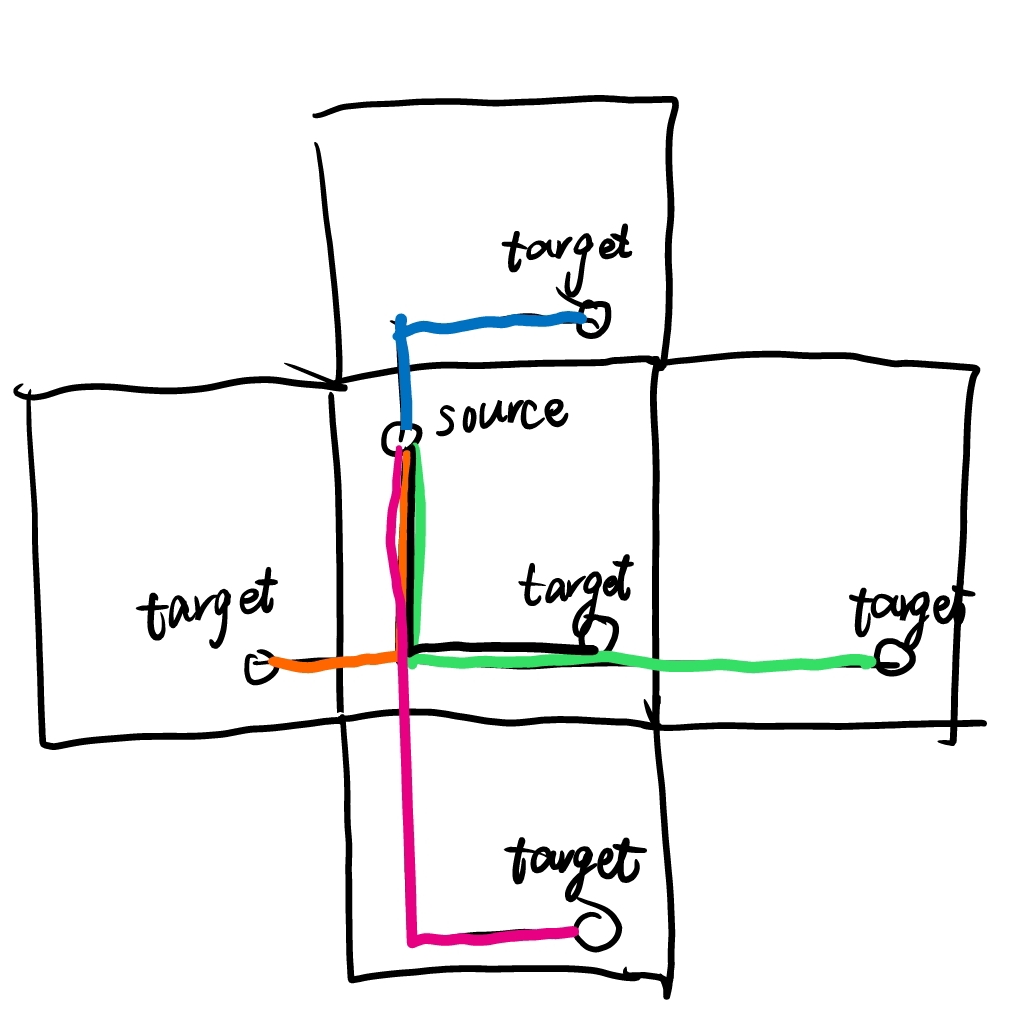 target
source
target
target
target
target